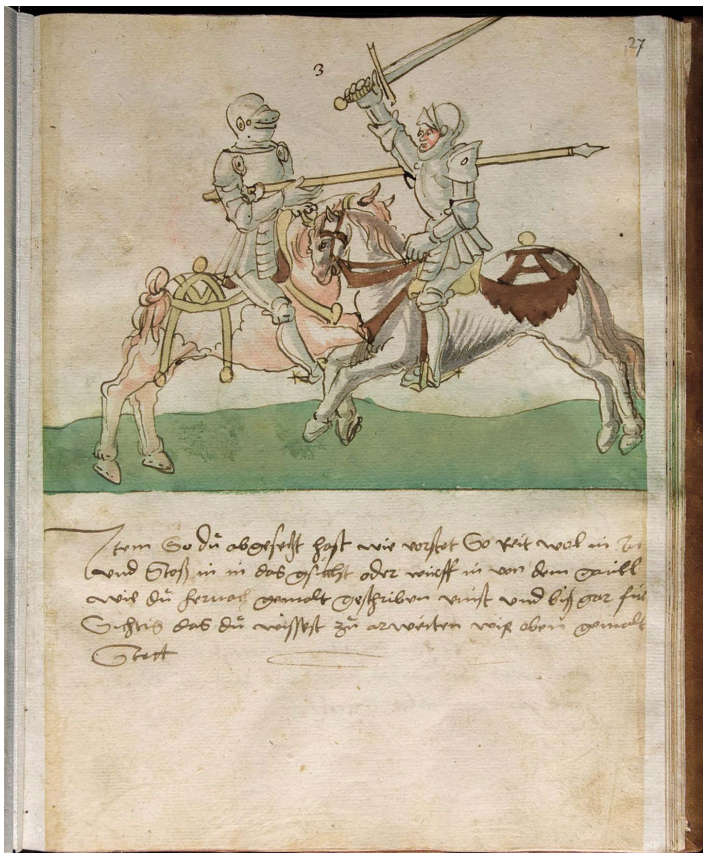 27
3
Item So du abgesetzt hast wie vorstet So Reit wol in In
und Stoß in in das gsicht oder wirff in von dem gaull
wie du hernach gemalt geschriben vinst und biß gar für
Sichtig das du wissest zu arweiten wie oben gemalt
Stett